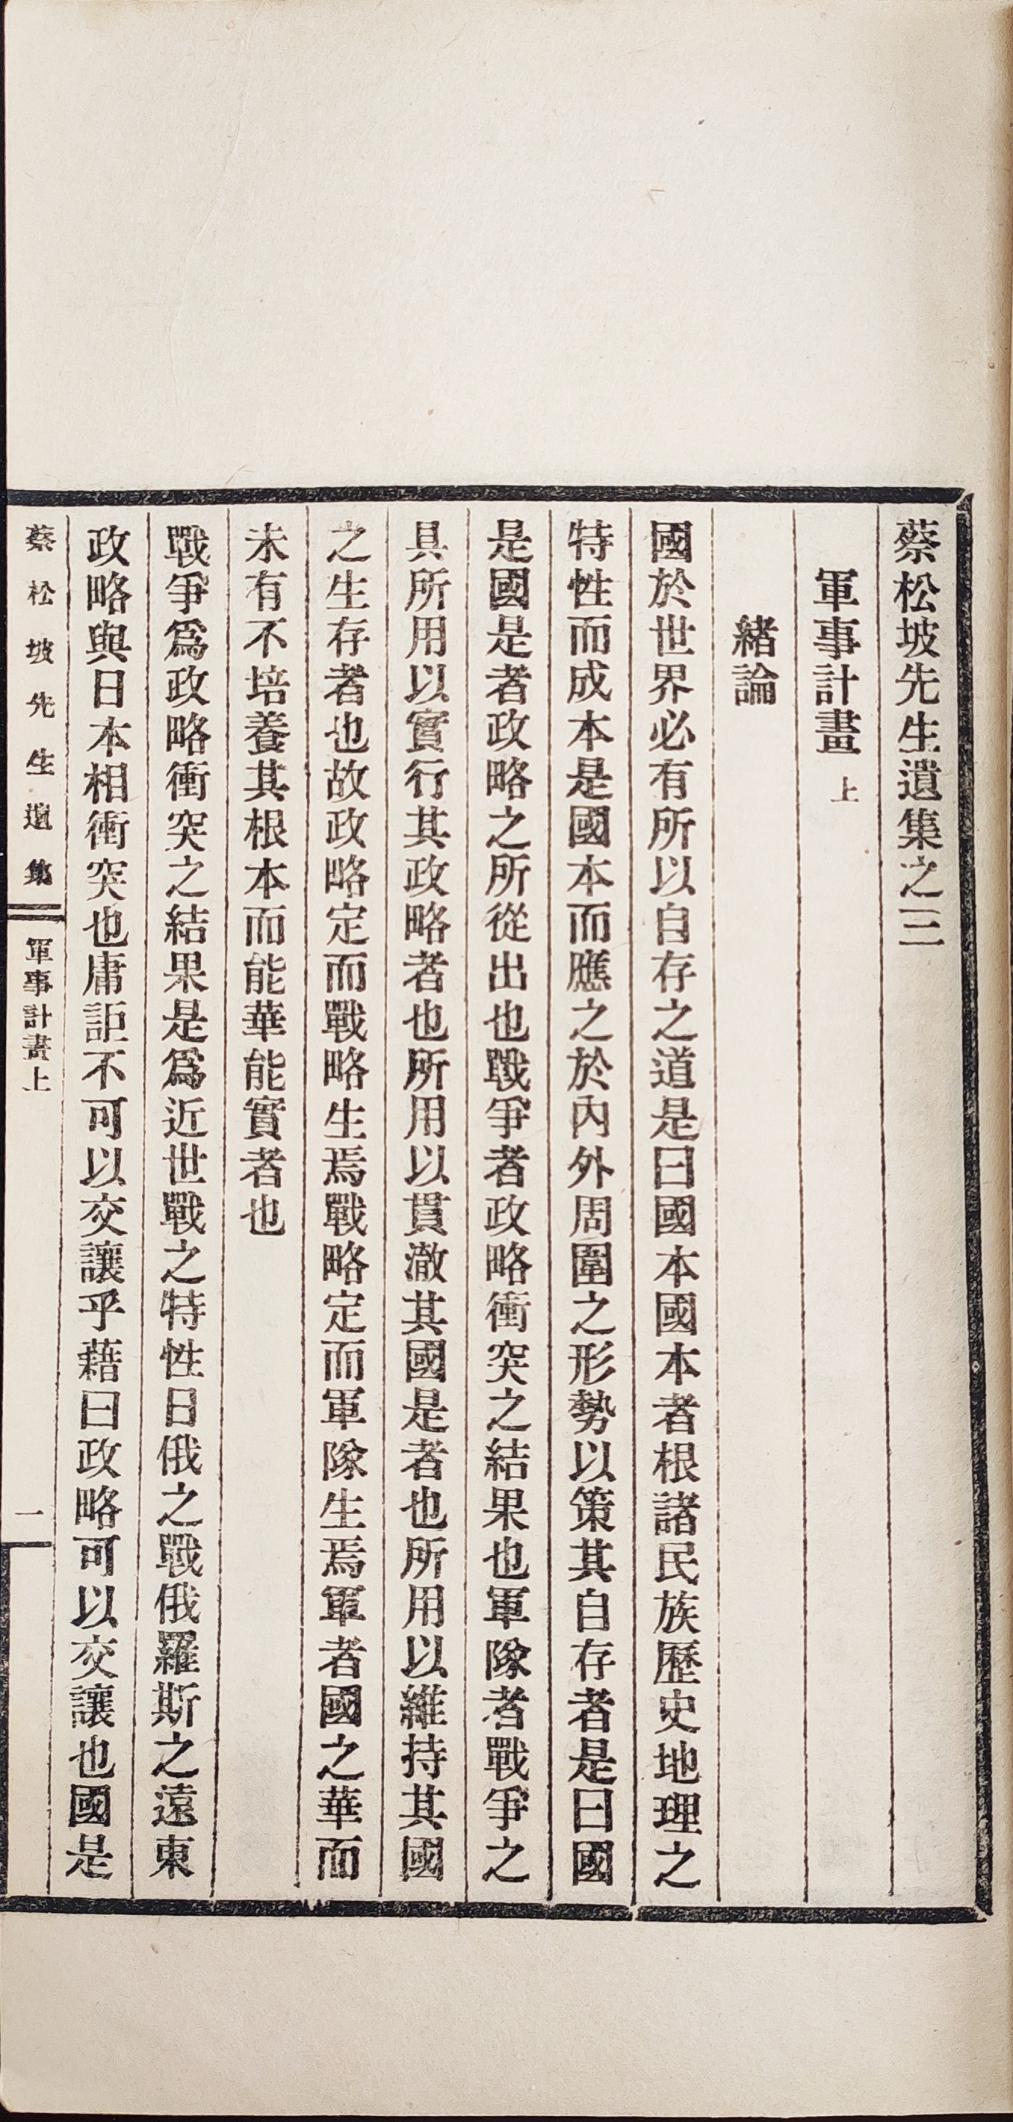 蔡松坡先生遺集之三
軍事計畫上
緒論
國於世界必有所以自存之道是曰國本國本者根諸民族歷史地理之
特性而成本是國本而應之於內外周圍之形勢以策其自存者是曰國
是國是者政略之所從出也戰爭者政略衝突之結果也軍隊者戰爭之
具所用以實行其政略者也所用以貫澈其國是者也所用以維持其國
之生存者也故政略定而戰略生焉戰略定而軍隊生焉軍者國之華而
未有不培養其根本而能華能實者也
戰爭爲政略衝突之結果是爲近世戰之特性日俄之戰俄羅斯之遠東
政略與日本相衝突也庸詎不可以交讓乎藉曰政略可以交讓也國是
蔡松坡先生遺集
軍事計畫上
一